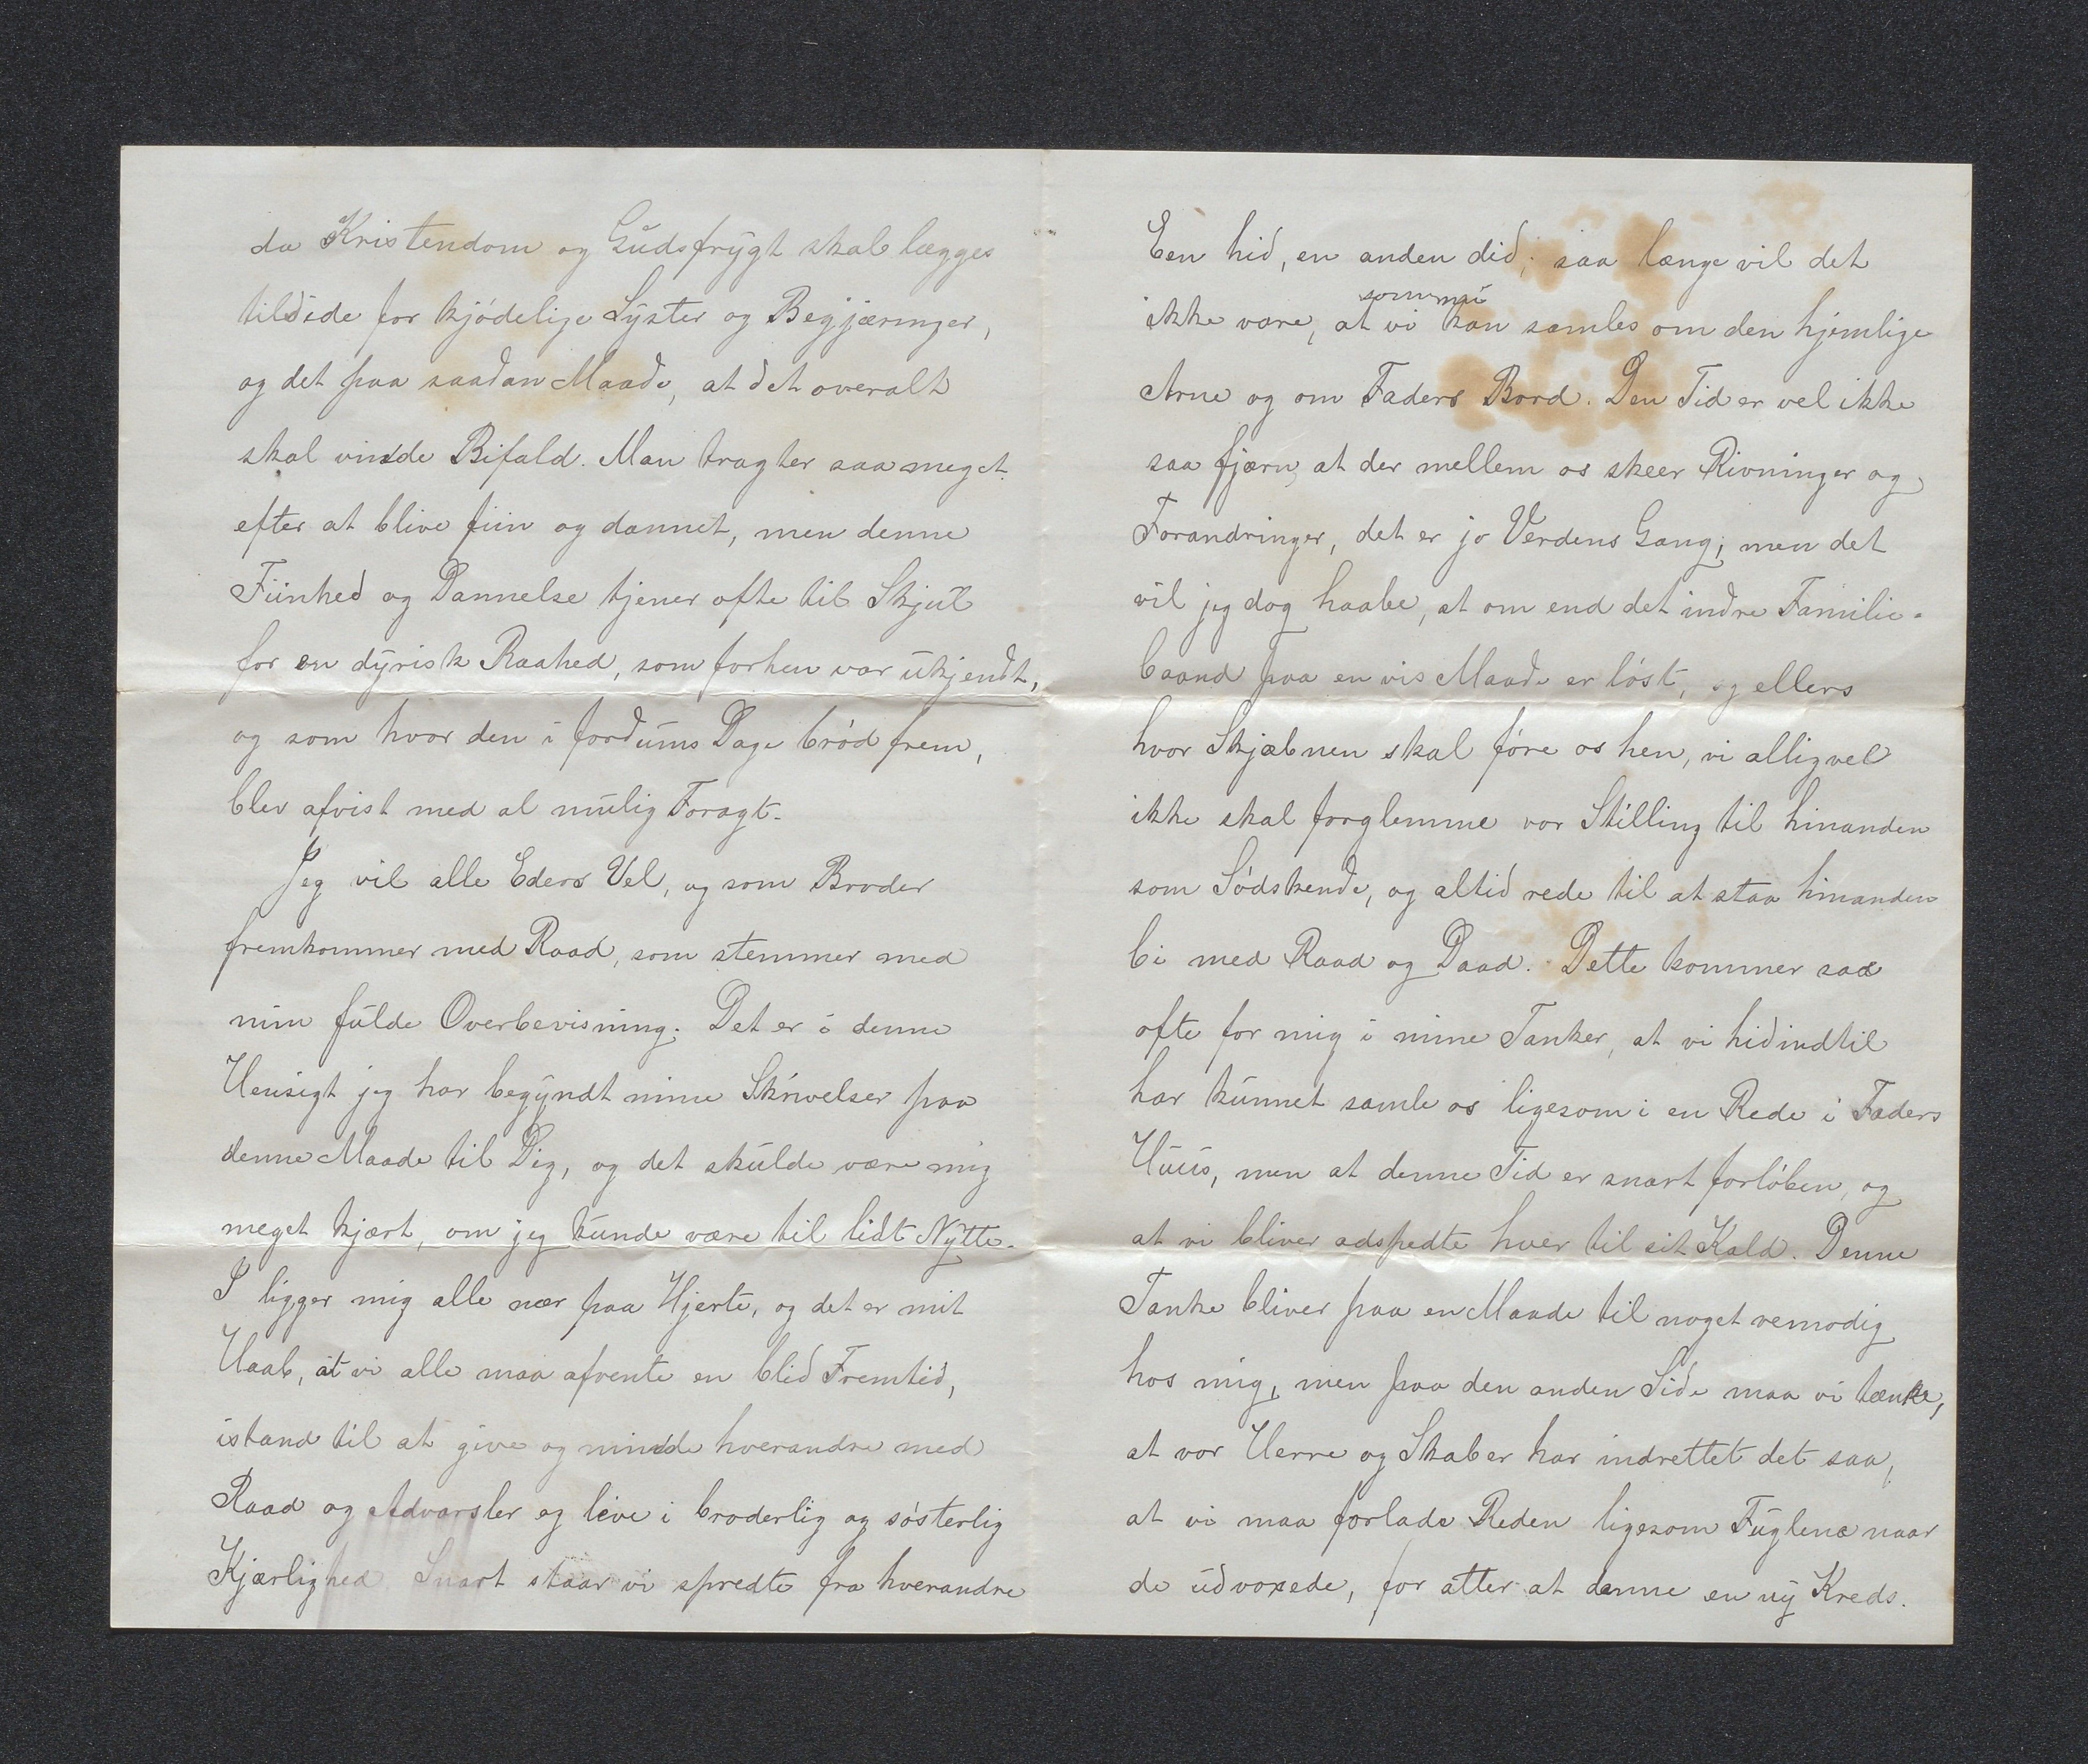 da Kristendom og Gudsfrygt skal lægges
tilside for kjødelige Lyster og Begjæringer,
og det paa saadan Maade, at det overalt
skal vinde Bifald. Man tragter saa meget
efter at blive fiin og dannet, men denne
Fiinhed og Dannelse tjener ofte til Skjul
for en dyrisk Raahed, som forhen var ukjendt,
og som hvor den i fordums Dage brød frem,
blev afvist med al mulig Foragt.
Jeg vil alle Eders Vel, og som Broder
fremkommer med Raad, som stemmer med
min fulde Overbevisning. Det er i denne
Hensigt jeg har begyndt mine Skrivelser paa
denne Maade til Dig, og det skulde være mig
meget kjært, om jeg kunde være til lidt Nytte.
I ligger mig alle nær paa Hjerte, og det er mit
Haab, at vi alle maa afvente en blid Fremtid,
istand til at give og minde hverandre med
Raad og Advarsler og leve i broderlig og søsterlig
Kjærlighed. Snart staar vi spredte fra hverandre
Een hid, en anden did; saa længe vil det
ikke vare, at vi som nu kan samles om den hjemlige
Arne og om Faders Bord. Den Tid er vel ikke
saa fjærn, at der mellem os skeer Rivninger og
Forandringer, det er jo Verdens Gang; men det
vil jeg dog haabe, at om end det indre Familie-
baand paa en vis Maade er løst, og ellers
hvor Skjæbnen skal føre os hen, vi alligvel
ikke skal forglemme vor Stilling til hinanden
som Sødskende, og altid rede til at staa hinanden
bi med Raad og Daad. Dette kommer saa
ofte for mig i mine Tanker, at vi hidindtil
har kunnet samle os ligesom i en Rede i Faders
Huus, men at denne Tid er snart forløben, og
at vi bliver adspedte hver til sit Kald. Denne
Tanke bliver paa en Maade til noget vemodig
hos mig, men paa den anden Side maa vi tænke,
at vor Herre og Skaber har indrettet det saa,
at vi maa forlade Reden ligesom Fuglene naar
de udvoxede, for atter at danne en ny Kreds.